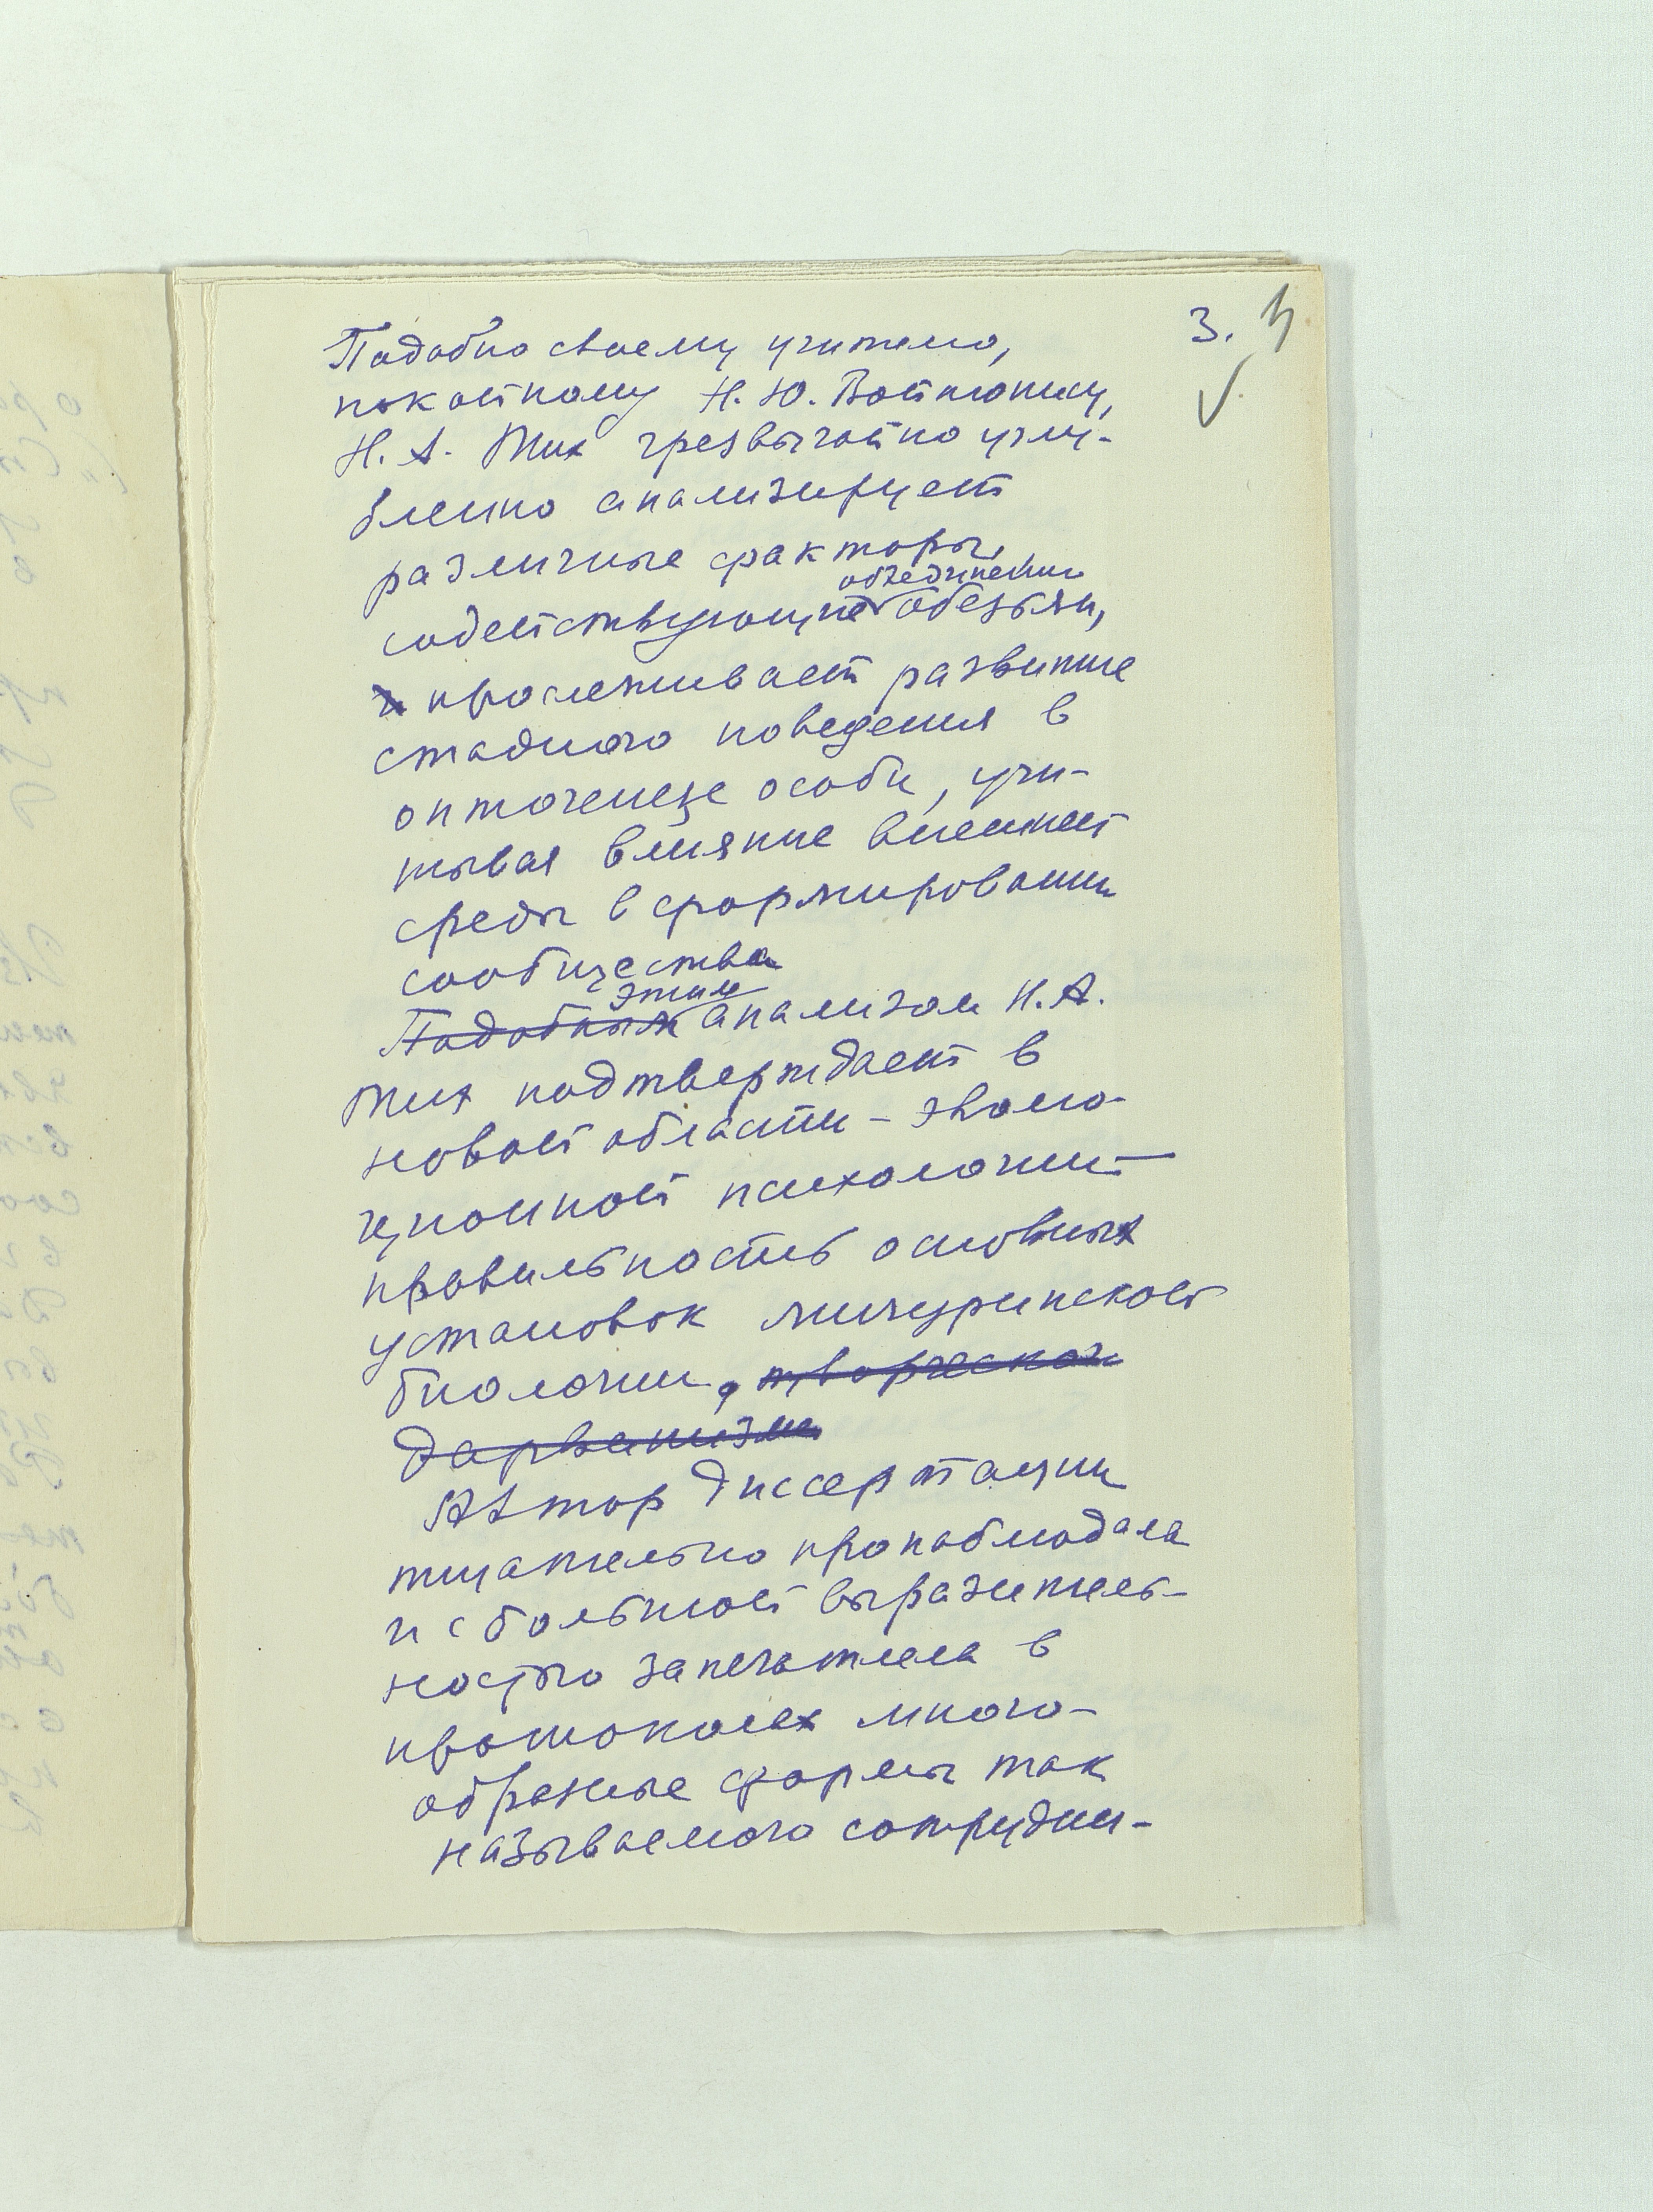 3.
Подобно своему учителю,
покойному Н. Ю. Войтонису,
Н. А. Тих чрезвычайно углу-
бленно анализирует
различные факторы,
объединению
содействующие обезьян,
и прослеживает развитие
стадного поведения в
онтогенезе особи, учи-
тывая влияние внешней
среды в формировании
сообщества
этим
Подобным анализом Н. А.
Тих подтверждает в
новой области – эволю-
ционной психологии –
правильность основных
установок мичуринской
биологии, творческого
дарвинизма
Автор диссертации
тщательно пронаблюдала
и с большой выразитель-
ностью запечатлела в
протоколах много-
образные формы так
называемого сотрудни-